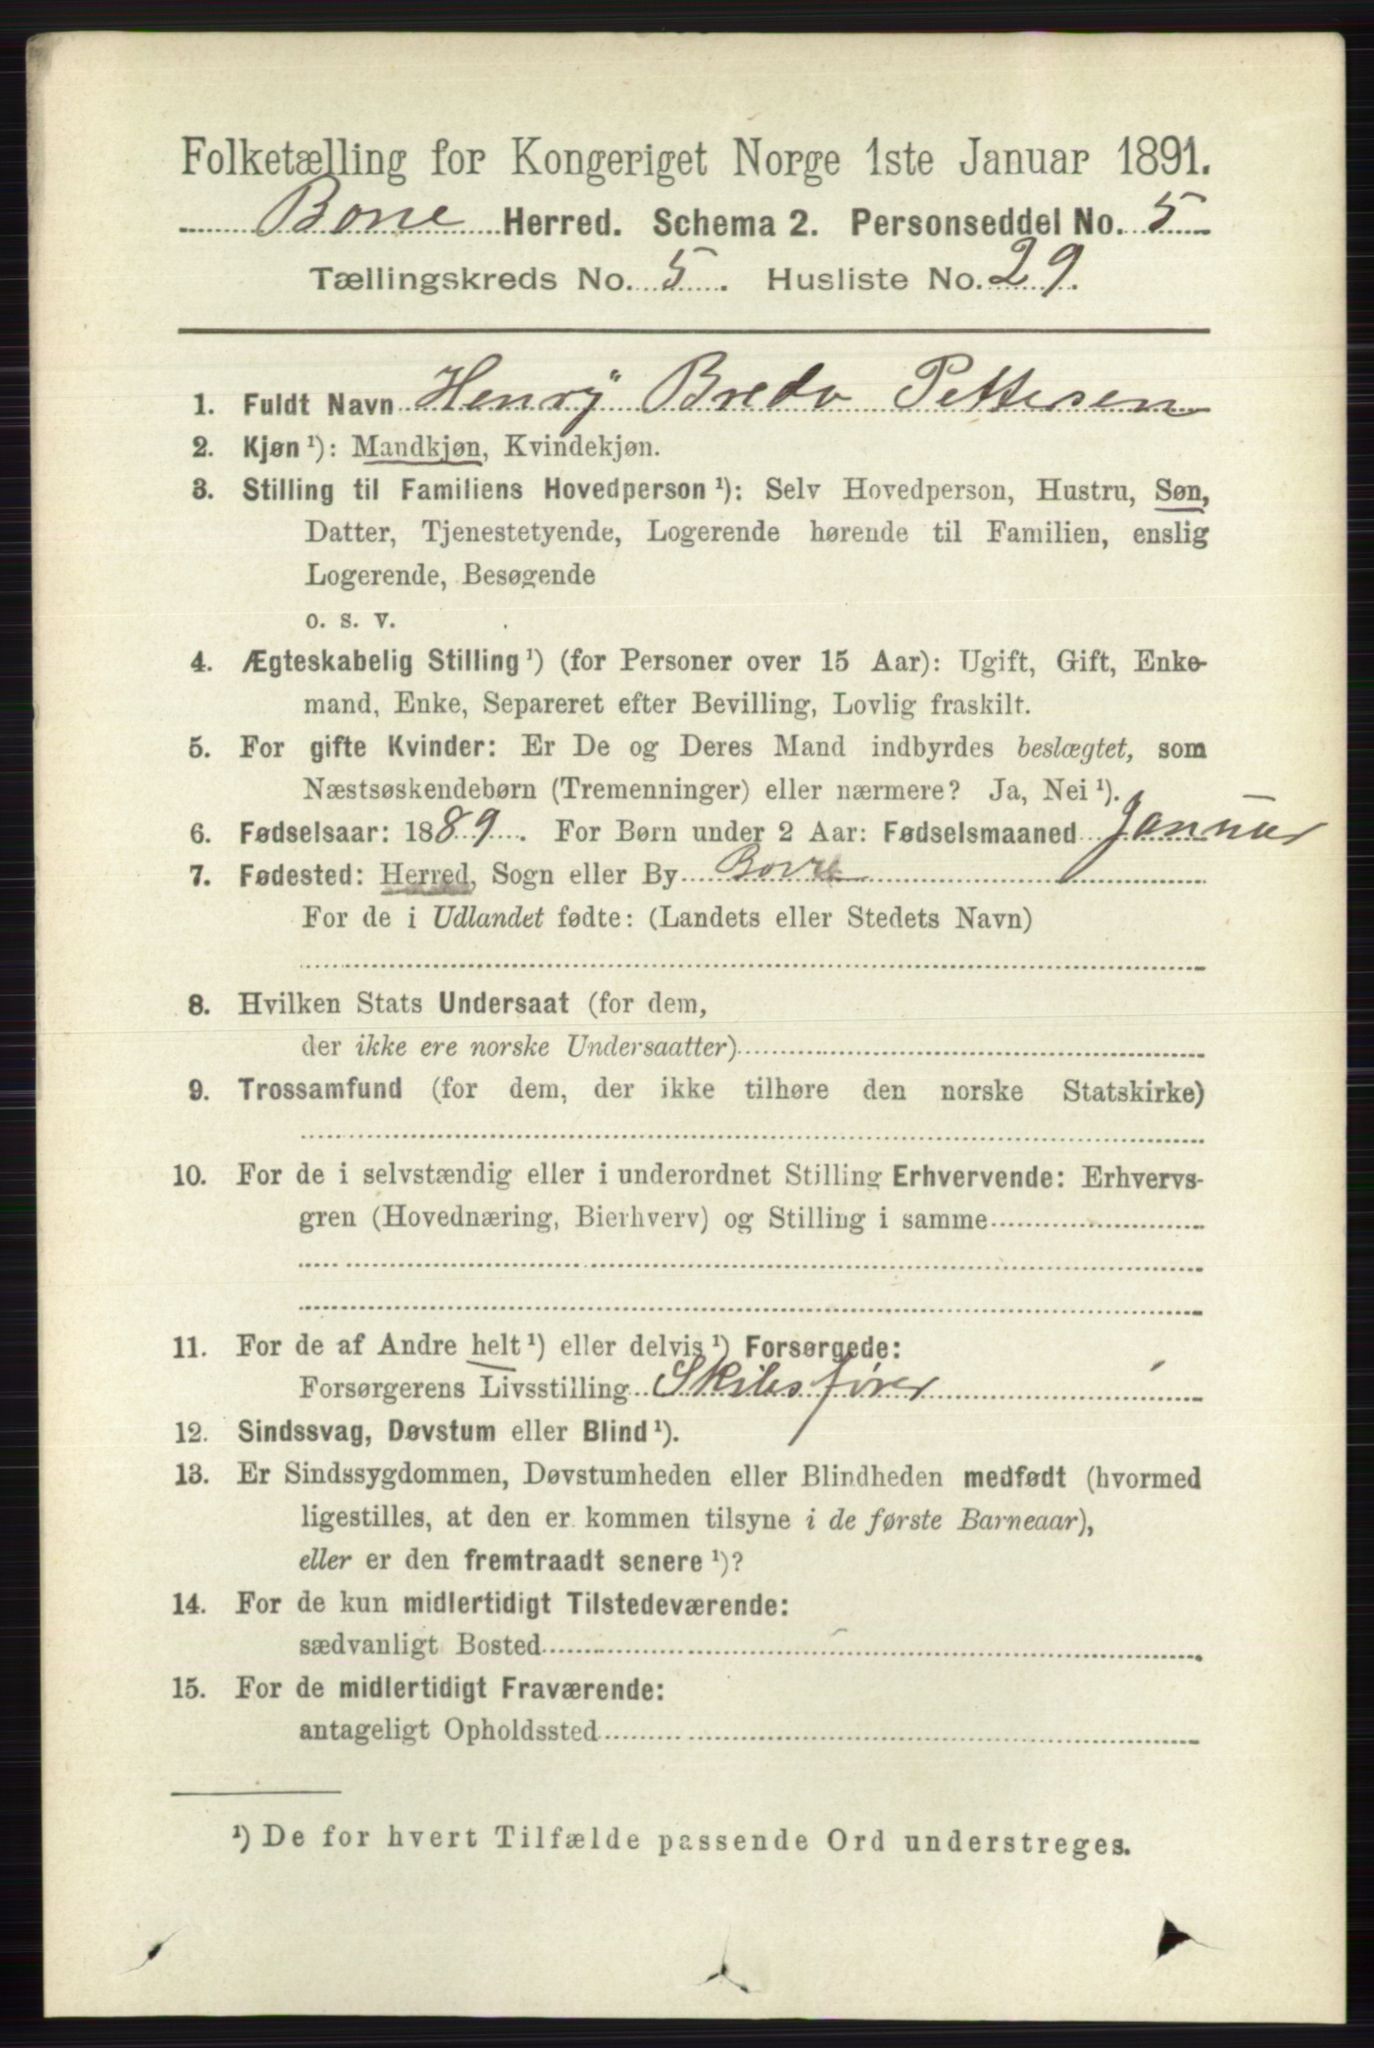 Folketælling for Kongeriget Norge 1ste Januar 1891.
Borre Herred. Schema 2. Personseddel No. 5
Tællingskreds No. 5. Husliste No. 29.
1. Fuldt Navn Henry Bredo Pettersen
2. Kjøn ¹): Mandkjøn, Kvindekjøn.
3. Stilling til Familiens Hovedperson ¹): Selv Hovedperson, Hustru, Søn,
Datter, Tjenestetyende, Logerende hørende til Familien, enslig
Logerende, Besøgende
o. s. v.
4. Ægteskabelig Stilling ¹) (for Personer over 15 Aar): Ugift, Gift, Enke-
mand, Enke, Separeret efter Bevilling, Lovlig fraskilt.
5. For gifte Kvinder: Er De og Deres Mand indbyrdes beslægtet, som
Næstsøskendebørn (Tremenninger) eller nærmere? Ja, Nei ¹).
6. Fødselsaar: 1889. For Børn under 2 Aar: Fødselsmaaned Januar
7. Fødested: Herred, Sogn eller By Borre
For de i Udlandet fødte: (Landets eller Stedets Navn)
8. Hvilken Stats Undersaat (for dem,
der ikke ere norske Undersaatter)
9. Trossamfund (for dem, der ikke tilhøre den norske Statskirke)
10. For de i selvstændig eller i underordnet Stilling Erhvervende: Erhvervs-
gren (Hovednæring, Bierhverv) og Stilling i samme
11. For de af Andre helt ¹) eller delvis ¹) Forsørgede:
Forsørgerens Livsstilling Skibsfører
12. Sindssvag, Døvstum eller Blind ¹).
13. Er Sindssygdommen, Døvstumheden eller Blindheden medfødt (hvormed
ligestilles, at den er kommen tilsyne i de første Barneaar),
eller er den fremtraadt senere ¹)?
14. For de kun midlertidigt Tilstedeværende:
sædvanligt Bosted
15. For de midlertidigt Fraværende:
antageligt Opholdssted
¹) De for hvert Tilfælde passende Ord understreges.